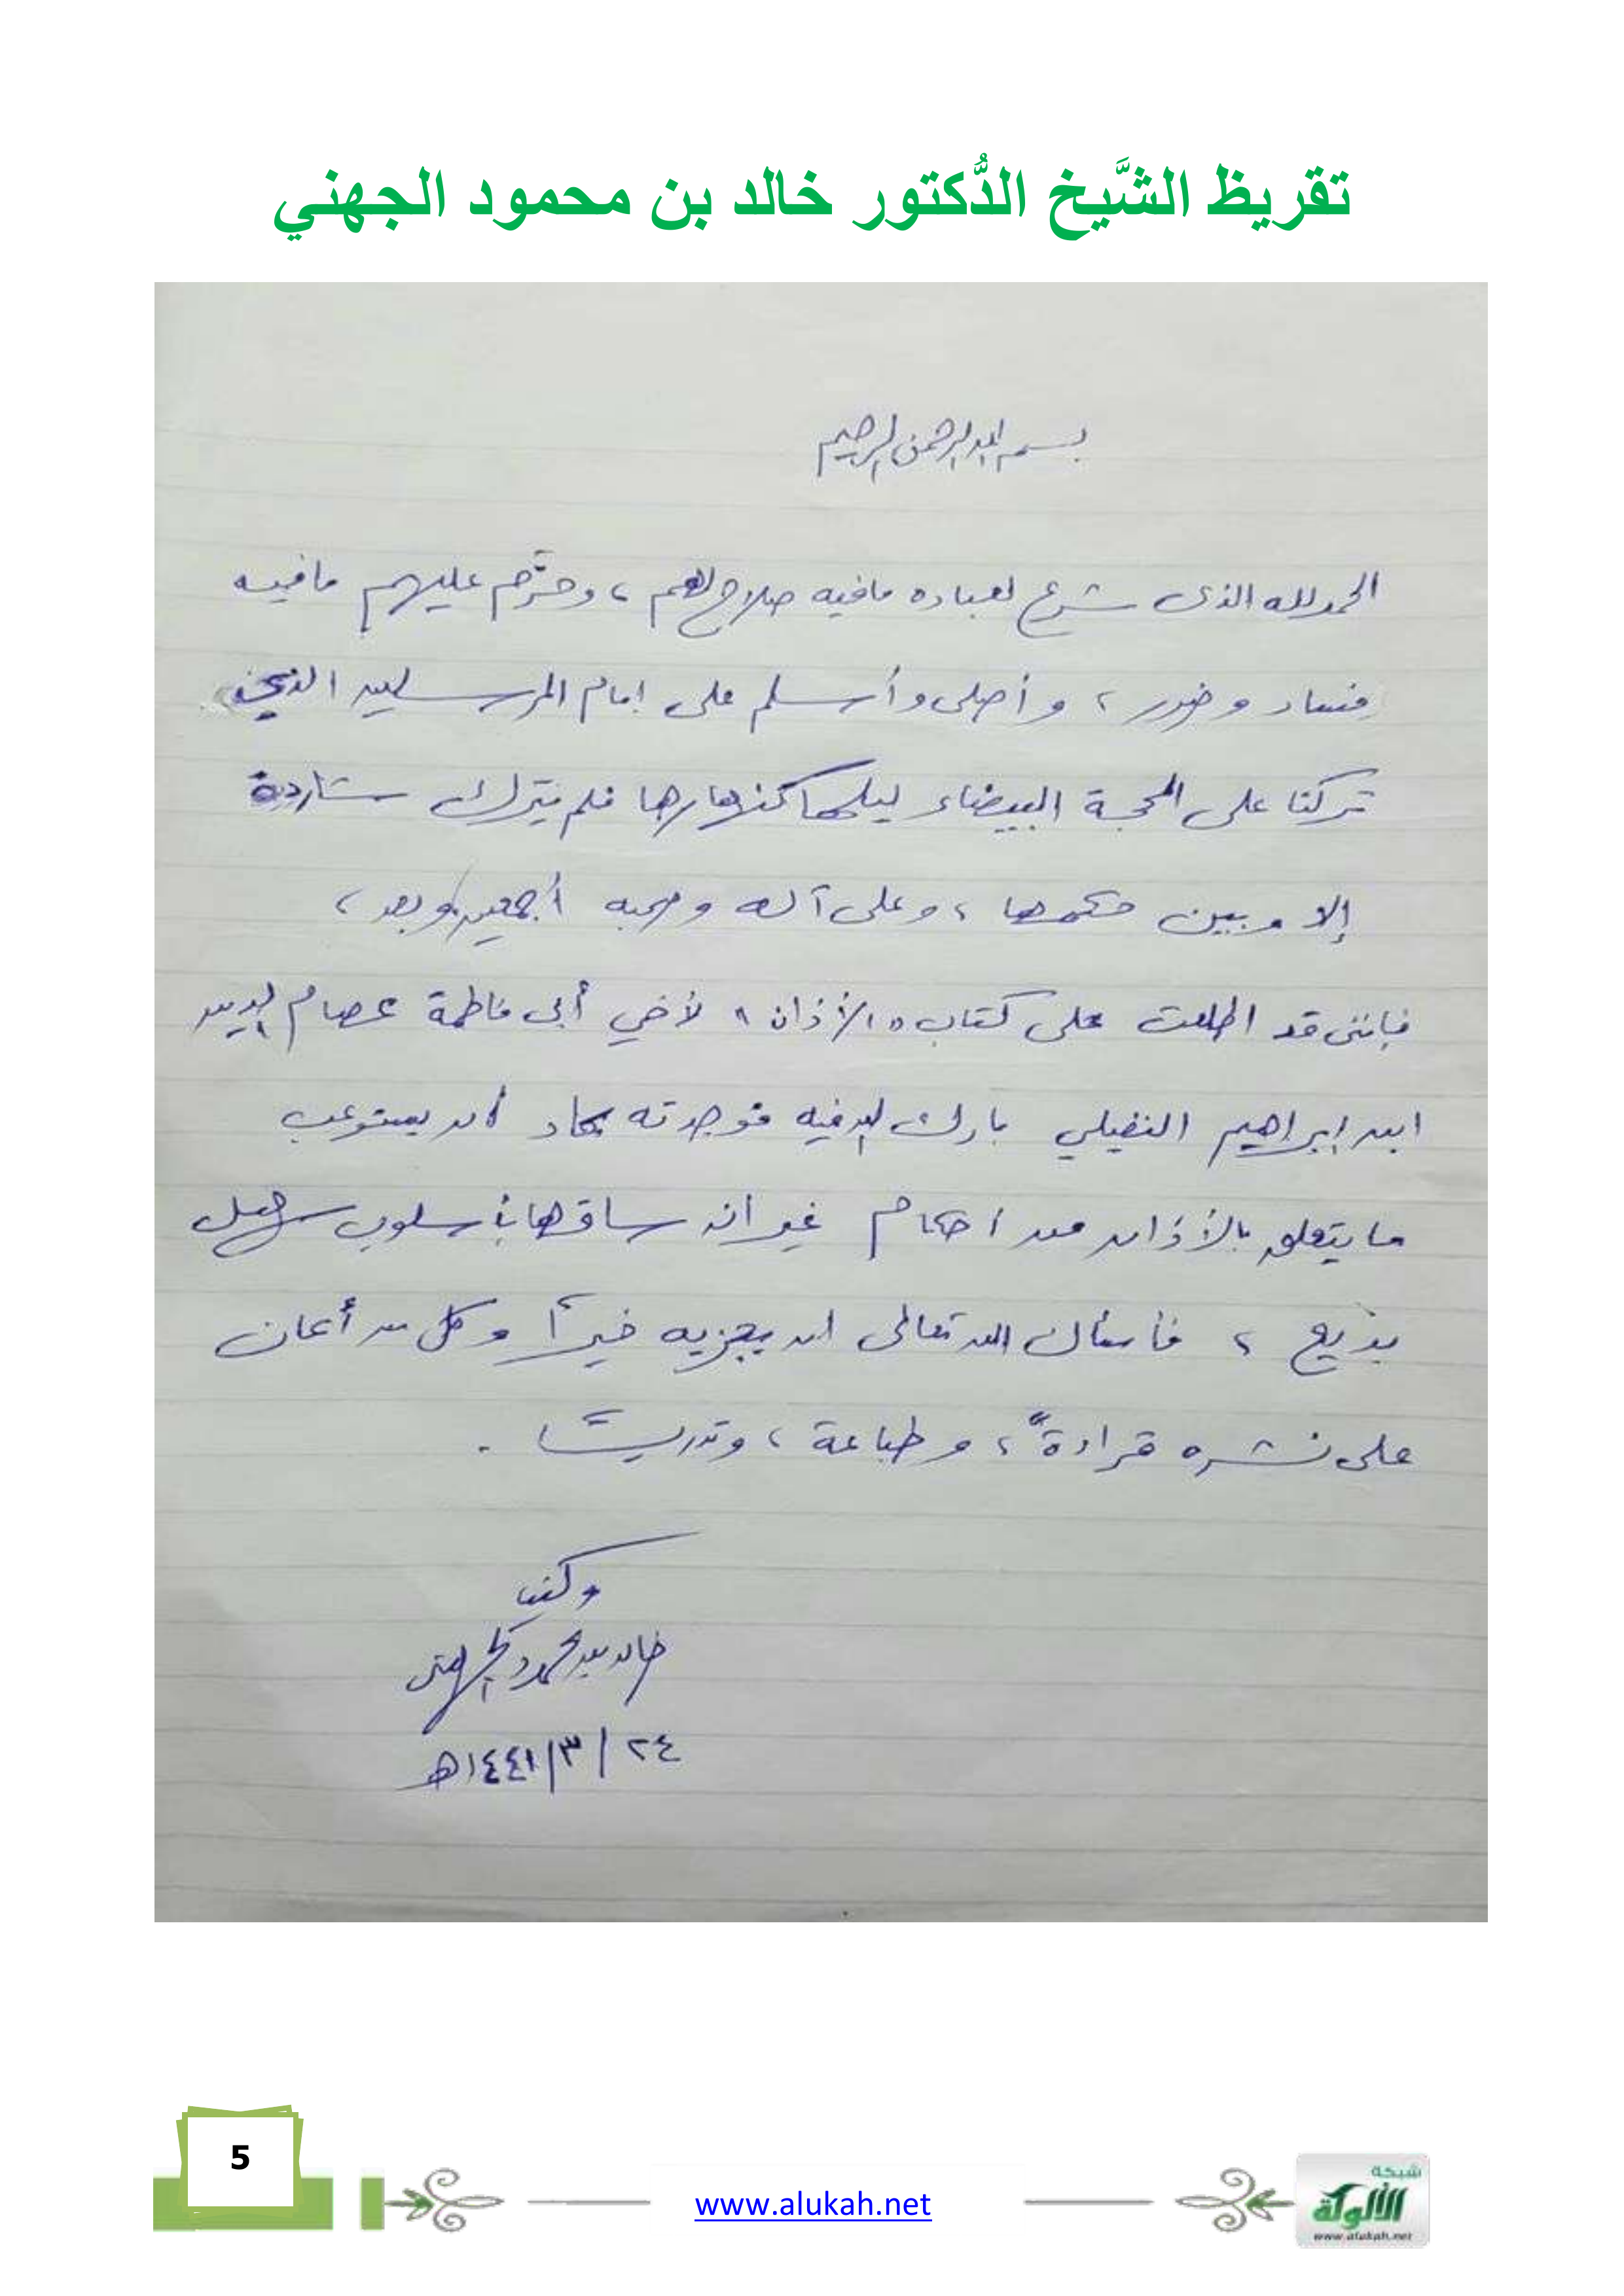 تقريظ الشَّيخ الدُّكتور خالد بن محمود الجهني
بسم الله الرحمن الرحيم
الحمد لله الذى شرع لعباده ما فيه صلاح لهم ، وحرَّم عليهم ما فيه
فساد وضرر ، وأصلى وأسلم على إمام المرسلين الذي
تركنا على المحجة البيضاء ليلها كنهارها فلم يترك شاردة
إلا وبين حكمها ، وعلى آله وصحبه أجمعين وبعد ،
فإننى قد اطلعت على كتاب « الأذان » لأخي أبى فاطمة عصام الدين
ابن إبراهيم النفيلي بارك الله فيه فوجدته كاد أن يستوعب
ما يتعلق بالأذان من أحكام غير أنه ساقها بأسلوب سهل
بديع ، فأسأل الله تعالى أن يجزيه خيرًا وكل من أعان
على نشره قراءةً ، وطباعة ، وتدريسًا .
وكتب
خالد بن محمود الجهنى
٢٤ / ٣ / ١٤٤١هـ
5
www.alukah.net
شبكة
الألوكة
www.alukah.net